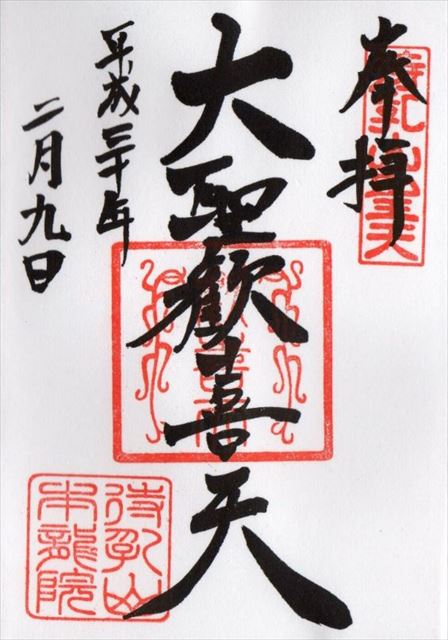 奉拝
待乳山聖天
大聖歓喜天
平成三十年
二月九日
待乳山
本龍院